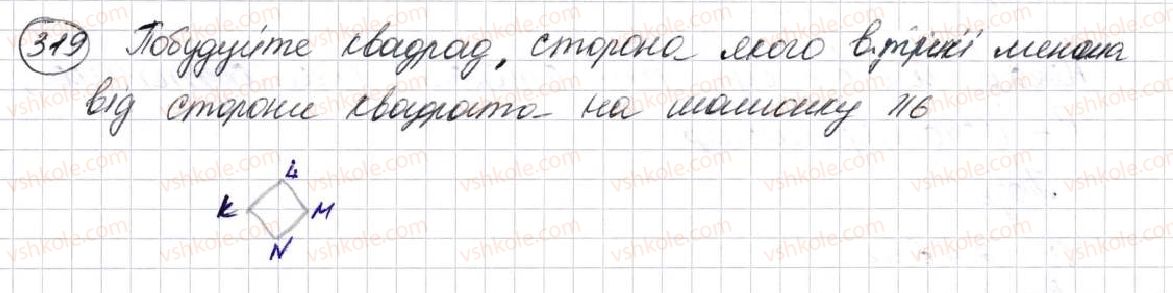 319 Побудуйте квадрад, сторона якого втричі менша
від сторони квадрата на малюнку 116
L
K M
N
vshkole.com